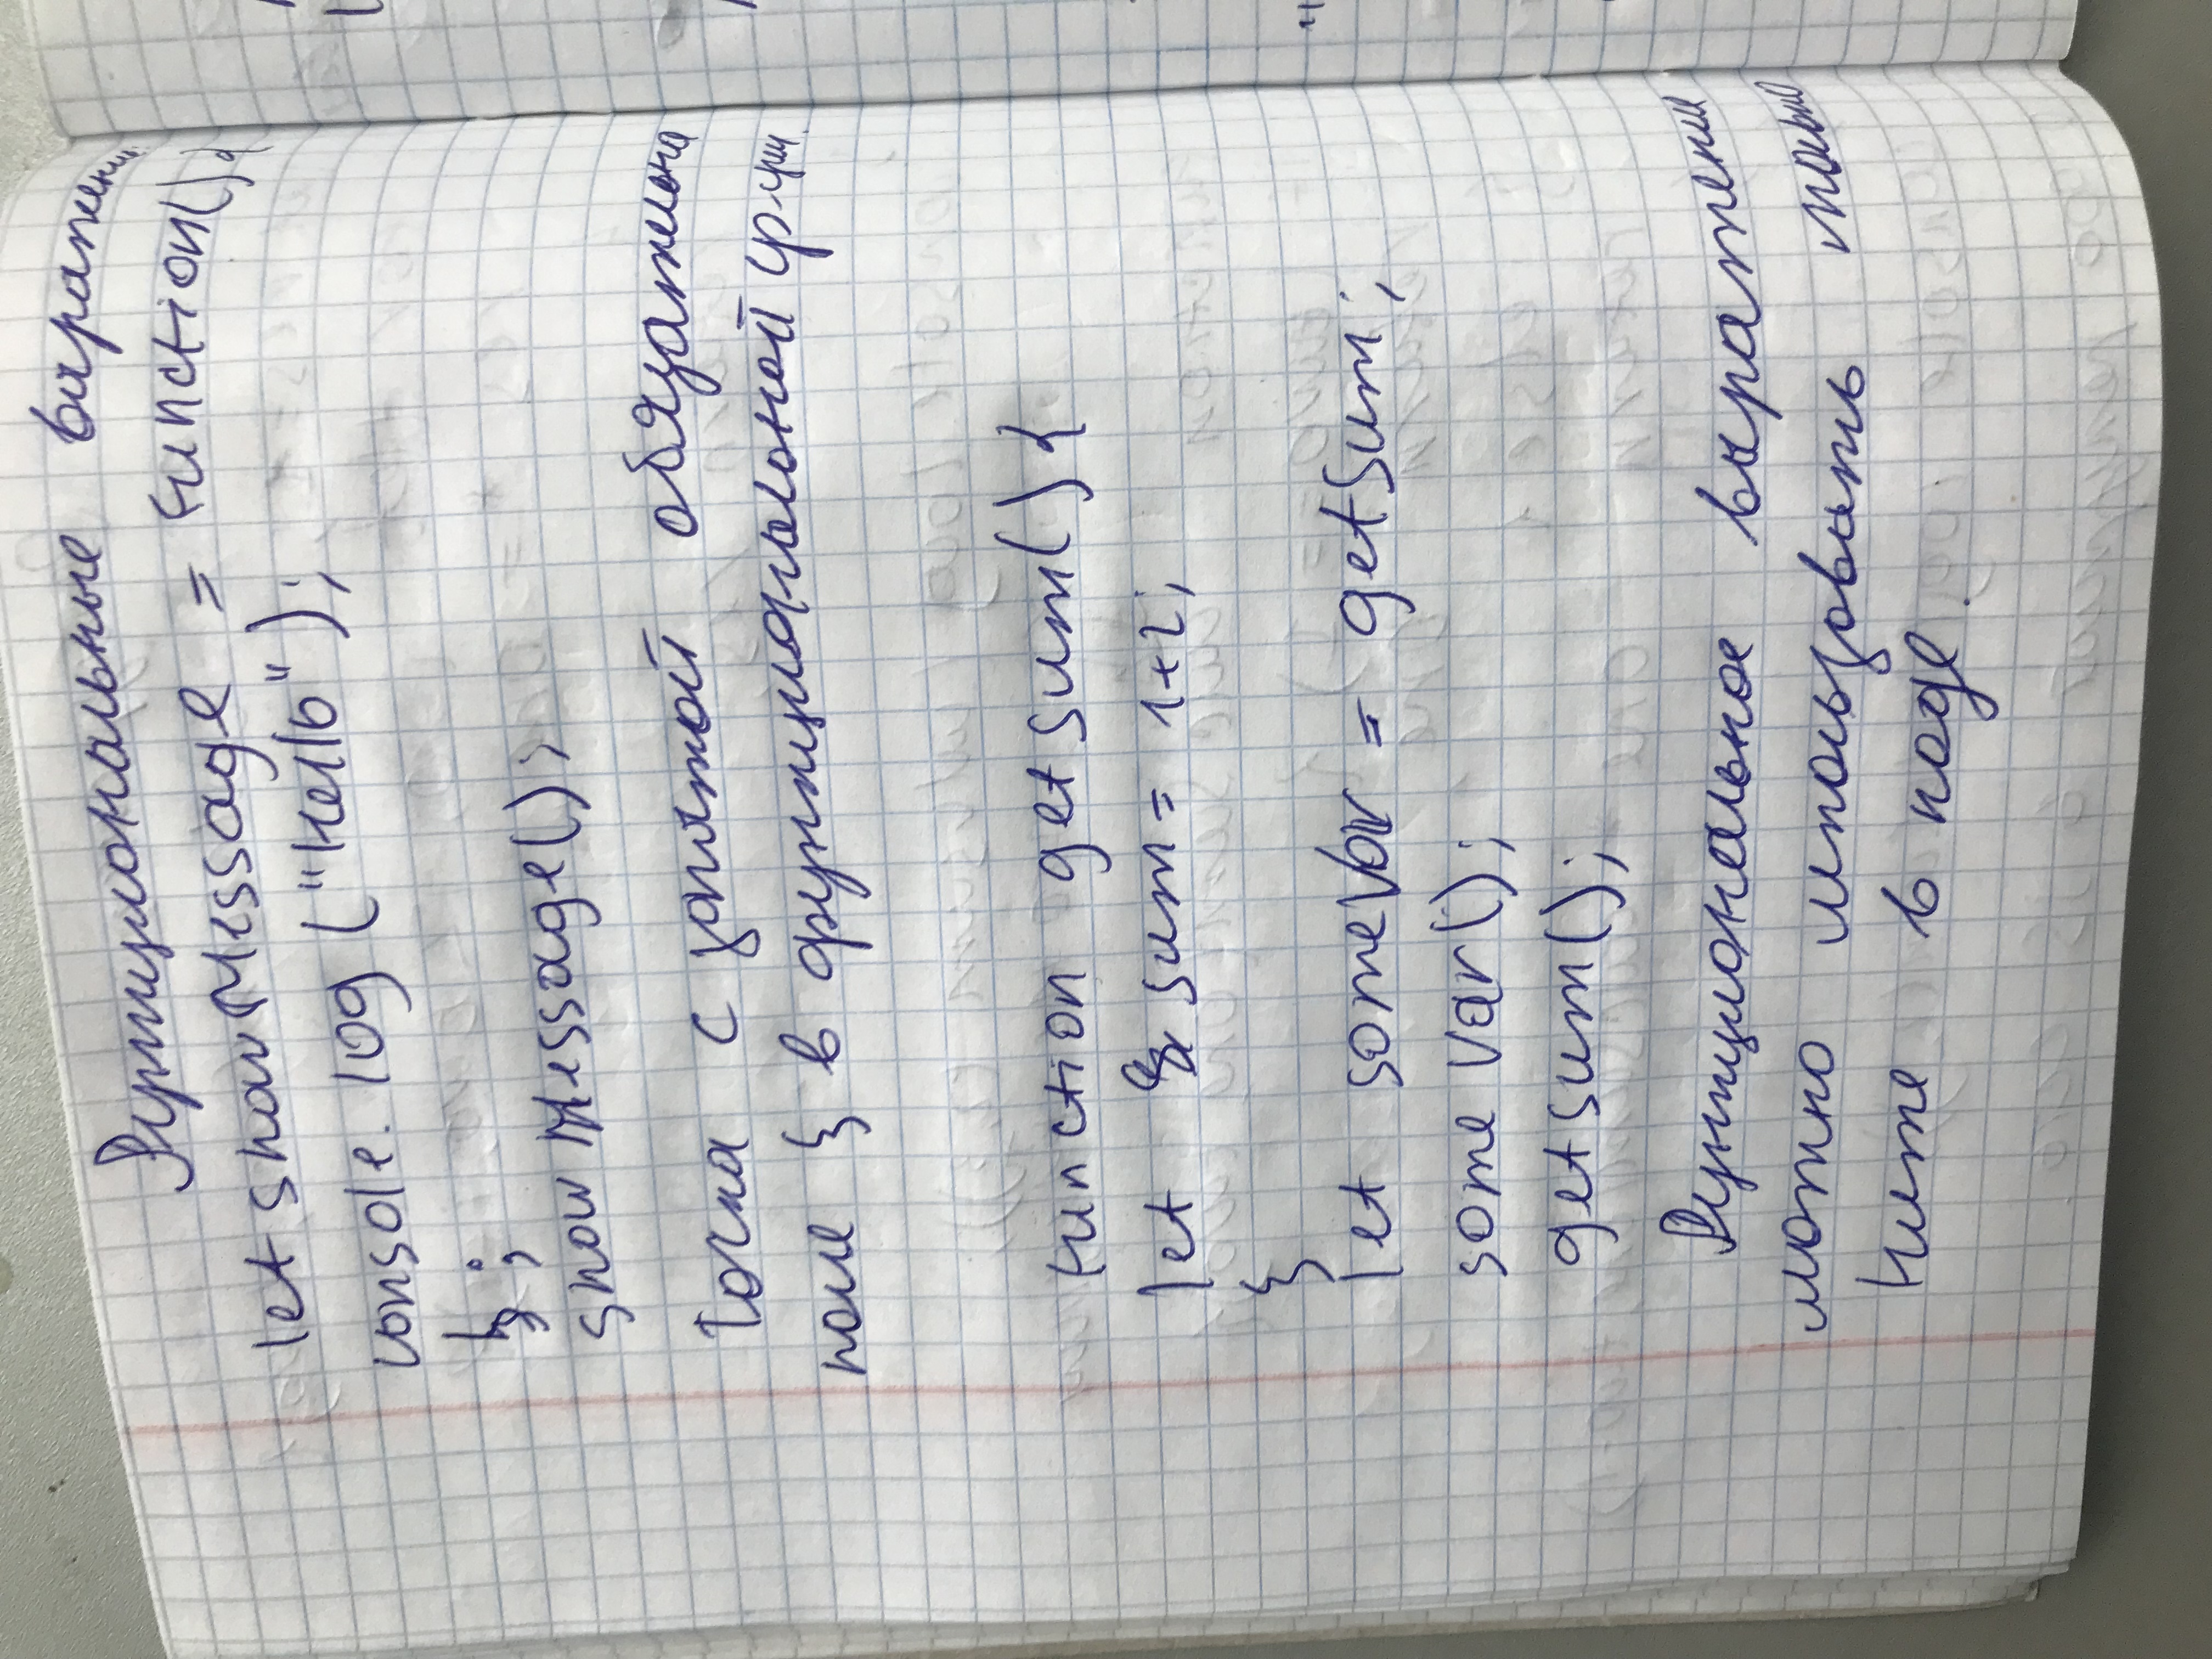 Функциональные выражения
let showMessage = function(){
console.log ("Hello");
};
showMessage();
Точка с запятой обязательна
после } в функциональной ф-ции.
function getsum(){
let sum = 1+2;
}
let someVar = getSum;
some Var();
getsum();
Функциональное выражение
можно использовать только
ниже в коде.